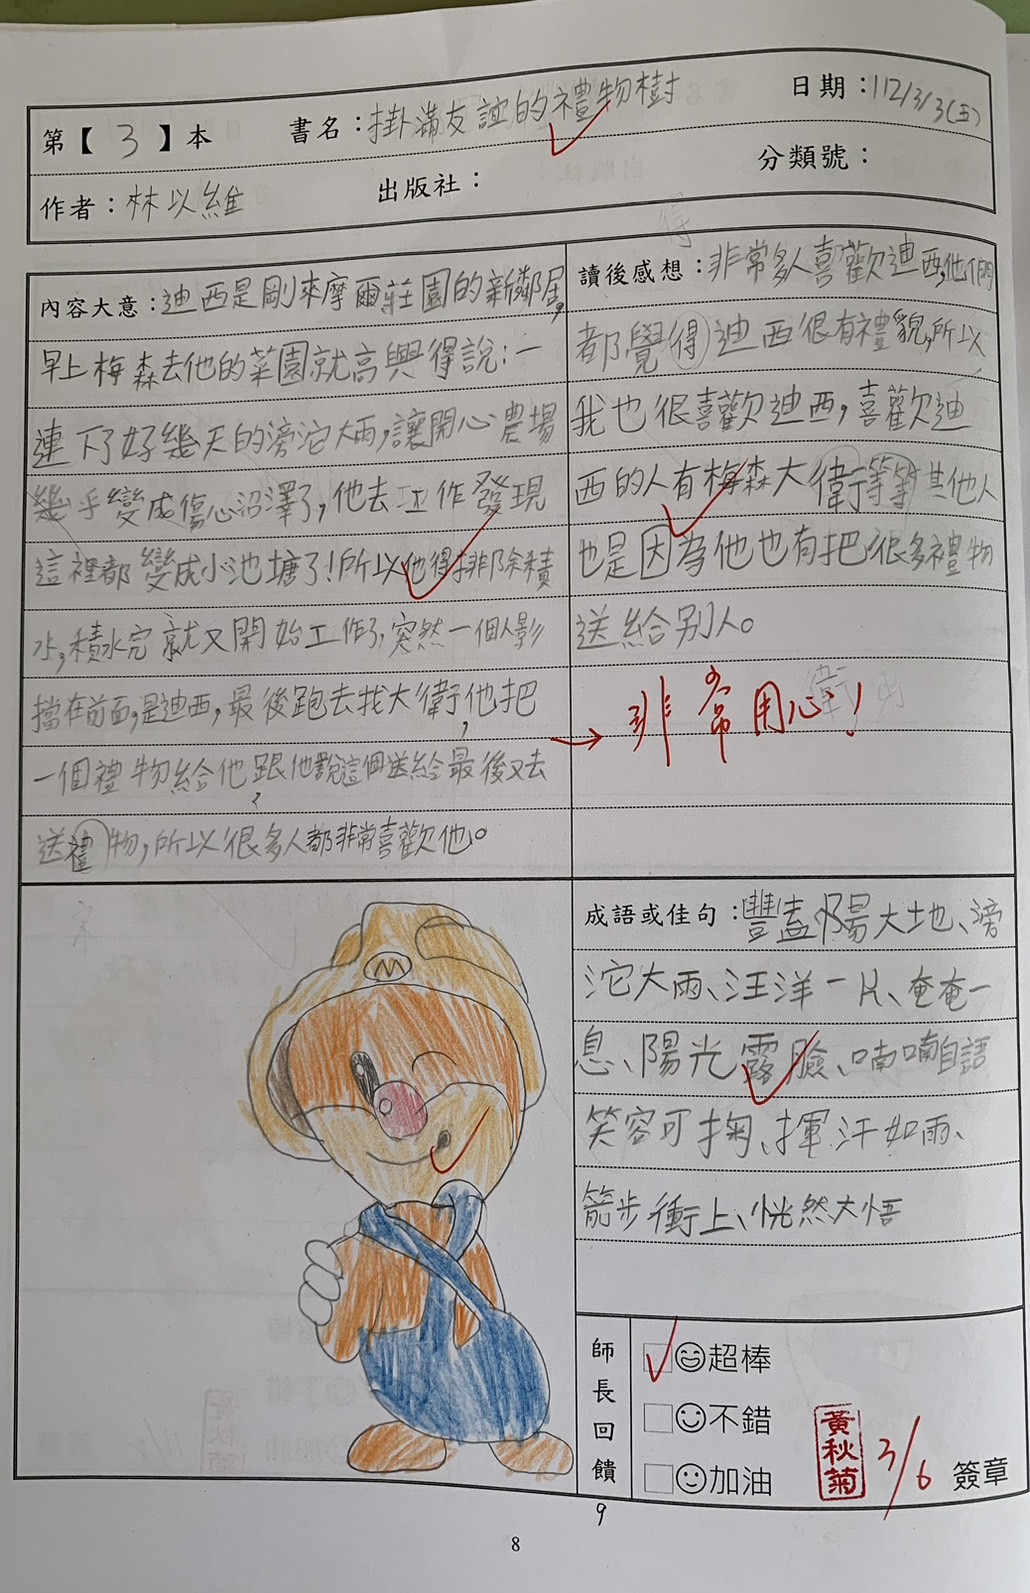 第【 3 】本 書名：掛滿友誼的禮物樹 日期：112/3/3(五)
作者：林以維 出版社： 分類號：
內容大意：迪西是剛來摩爾莊園的新鄰居,
早上梅森去他的菜園就高興得說：一
連下了好幾天的滂沱大雨,讓開心農場
幾乎變成傷心沼澤了,他去工作發現
這裡都變成小池塘了!所以他得排除積
水,積水完就又開始工作了,突然一個人影
擋在前面,是迪西,最後跑去找大衛,他把
一個禮物給他跟他說這個送給最後又去
送禮物,所以很多人都非常喜歡他。
讀後感想：非常多人喜歡迪西,他們
都覺得迪西很有禮貌,所以
我也很喜歡迪西,喜歡迪
西的人有梅森大衛等等其他人
也是因為他也有把很多禮物
送給別人。
非常用心!
成語或佳句：豐盈、陽大地、滂
沱大雨、汪洋一片、奄奄一
息、陽光露臉、喃喃自語
笑容可掬、揮汗如雨、
箭步衝上、恍然大悟
師長回饋
超棒
不錯
加油
黃秋菊 3/6 簽章
9
8